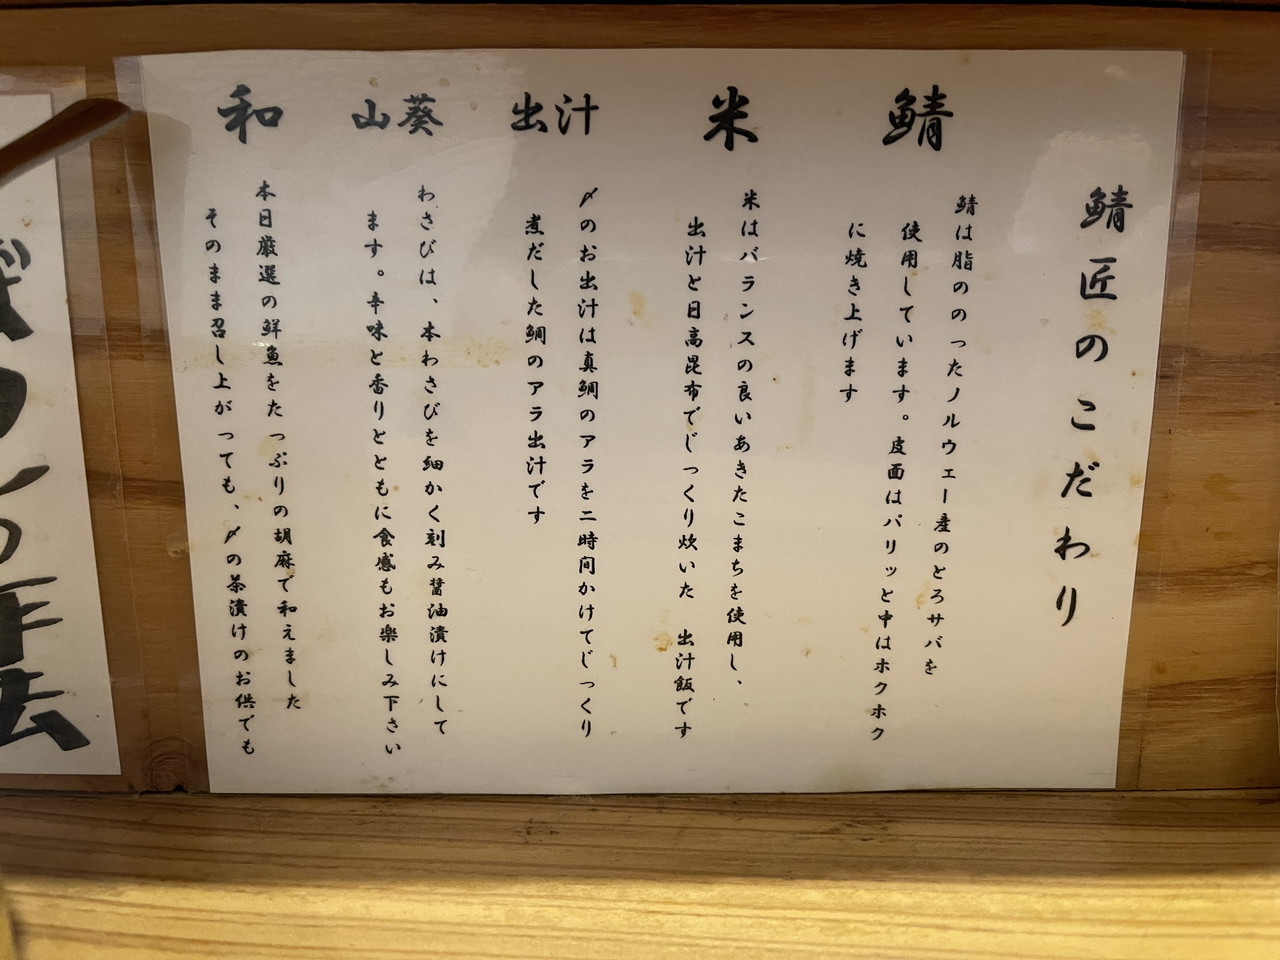 鯖匠のこだわり
鯖
鯖は脂ののったノルウェー産のとろサバを
使用しています。皮面はパリッと中はホクホク
に焼き上げます
米
米はバランスの良いあきたこまちを使用し、
出汁と日高昆布でじっくり炊いた　出汁飯です
出汁
〆のお出汁は真鯛のアラを二時間かけてじっくり
煮だした鯛のアラ出汁です
山葵
わさびは、本わさびを細かく刻み醤油漬けにして
ます。辛味と香りとともに食感もお楽しみ下さい
和
本日厳選の鮮魚をたっぷりの胡麻で和えました
そのまま召し上がっても、〆の茶漬けのお供でも